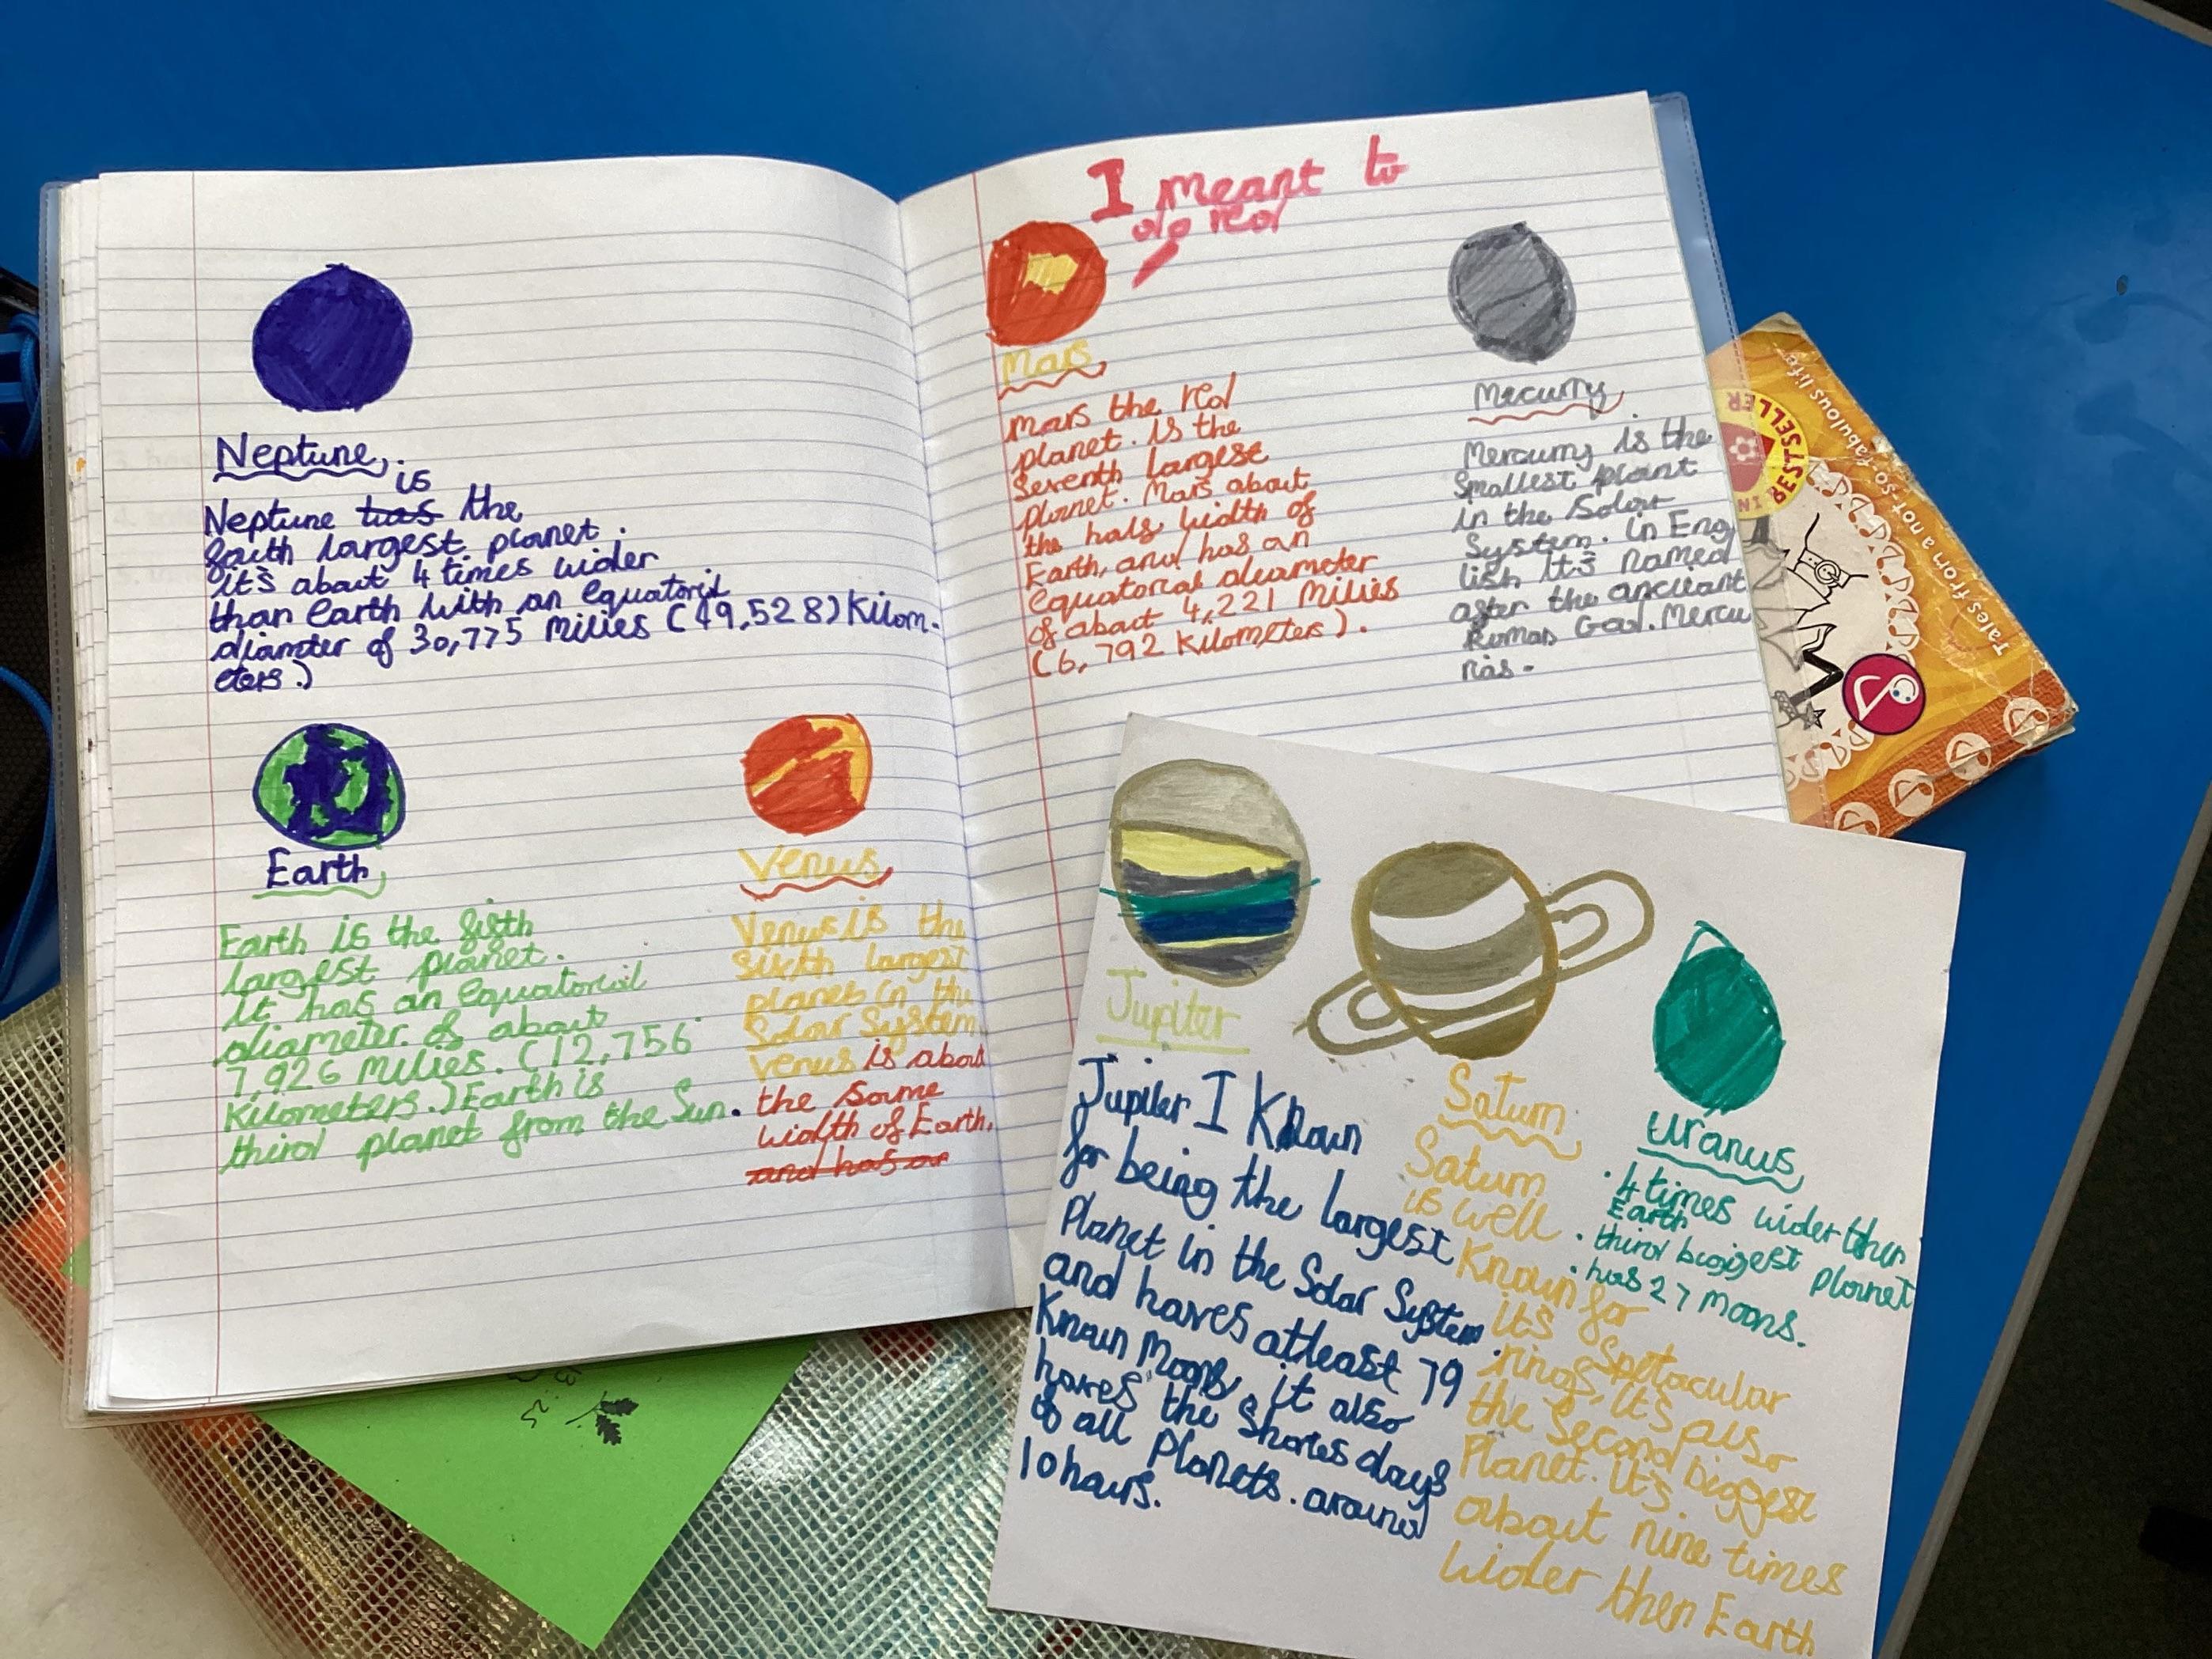 Neptune.
is
Neptune has the
fouth largest planet.
it's about 4 times wider
than Earth with an equatoril
diamter of 30,775 Milies (49,528) Kilom-
eters.)
Earth
Earth is the fifth
largest planet.
It has an equatorial
diameter. of about
7,926 Milies. (12,756
Kilometers.) Earth is
third planet from the Sun.
Venus
Venus is the
sixth largest
planet in the
Solar System.
Venus is about
the same
width of Earth.
and has an
I meant to
do red
Mars
Mars the red
planet. is the
seventh largest
planet. Mars about
the half width of
Earth, and has an
equatorial diameter
of about 4,221 Milies
(6,792 Kilometers).
Mecurry
Mercurry is the
Smallest plant
in the Solar
System. in Eng
lish It's named
after the anceant
Roman God. Mercu
rias.
Jupiter
Jupiter I Known
for being the largest
Planet in the Solar System.
and haves atleast 79
Known Moons, it also
haves the Shortes days
to all Planets. around
10 hours.
Saturn
Saturn
is well
Known for
it's Spetacular
rings, It's also
the Second biggest
Planet. It's
about nine times
wider then Earth
Uranus
• 4 times wider then
Earth
• third biggest planet
• has 27 moons.
BESTSELLER
Tales from a not-so-fabulous life